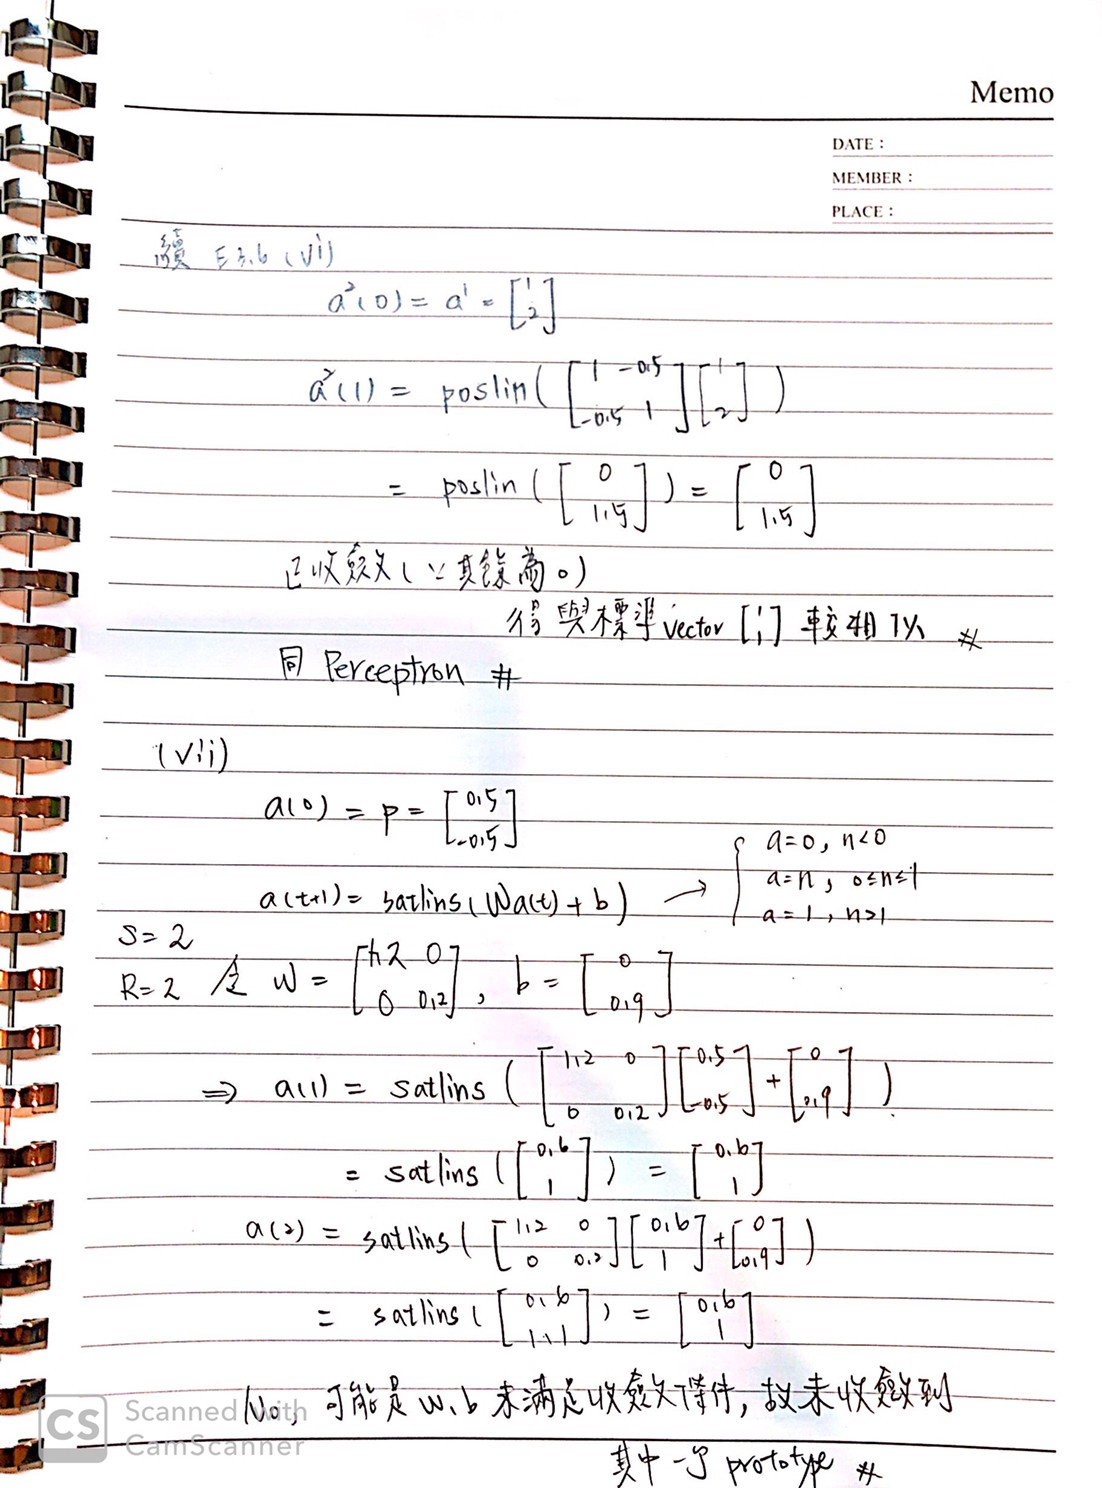 Memo
DATE :
MEMBER :
PLACE :
續 E3.6 (vi)
a²(0) = a¹ = [1; 2]
a²(1) = poslin([1 -0.5; -0.5 1][1; 2])
= poslin([0; 1.5]) = [0; 1.5]
已收斂(∵其餘為0)
得與標準vector [1; 1] 較相似 #
同 Perceptron #
(vii)
a(0) = p = [0.5; -0.5]
a(t+1) = satlins(Wa(t) + b) → { a=0, n<0
a=n, 0≤n≤1
a=1, n>1
S=2
R=2 令 W = [1.2 0; 0 0.2], b = [0; 0.9]
⇒ a(1) = satlins([1.2 0; 0 0.2][0.5; -0.5] + [0; 0.9])
= satlins([0.6; 1]) = [0.6; 1]
a(2) = satlins([1.2 0; 0 0.2][0.6; 1] + [0; 0.9])
= satlins([0.6; 1.1]) = [0.6; 1]
No, 可能是 W、b 未滿足收斂條件, 故未收斂到
其中一個 prototype #
CS Scanned with
CamScanner